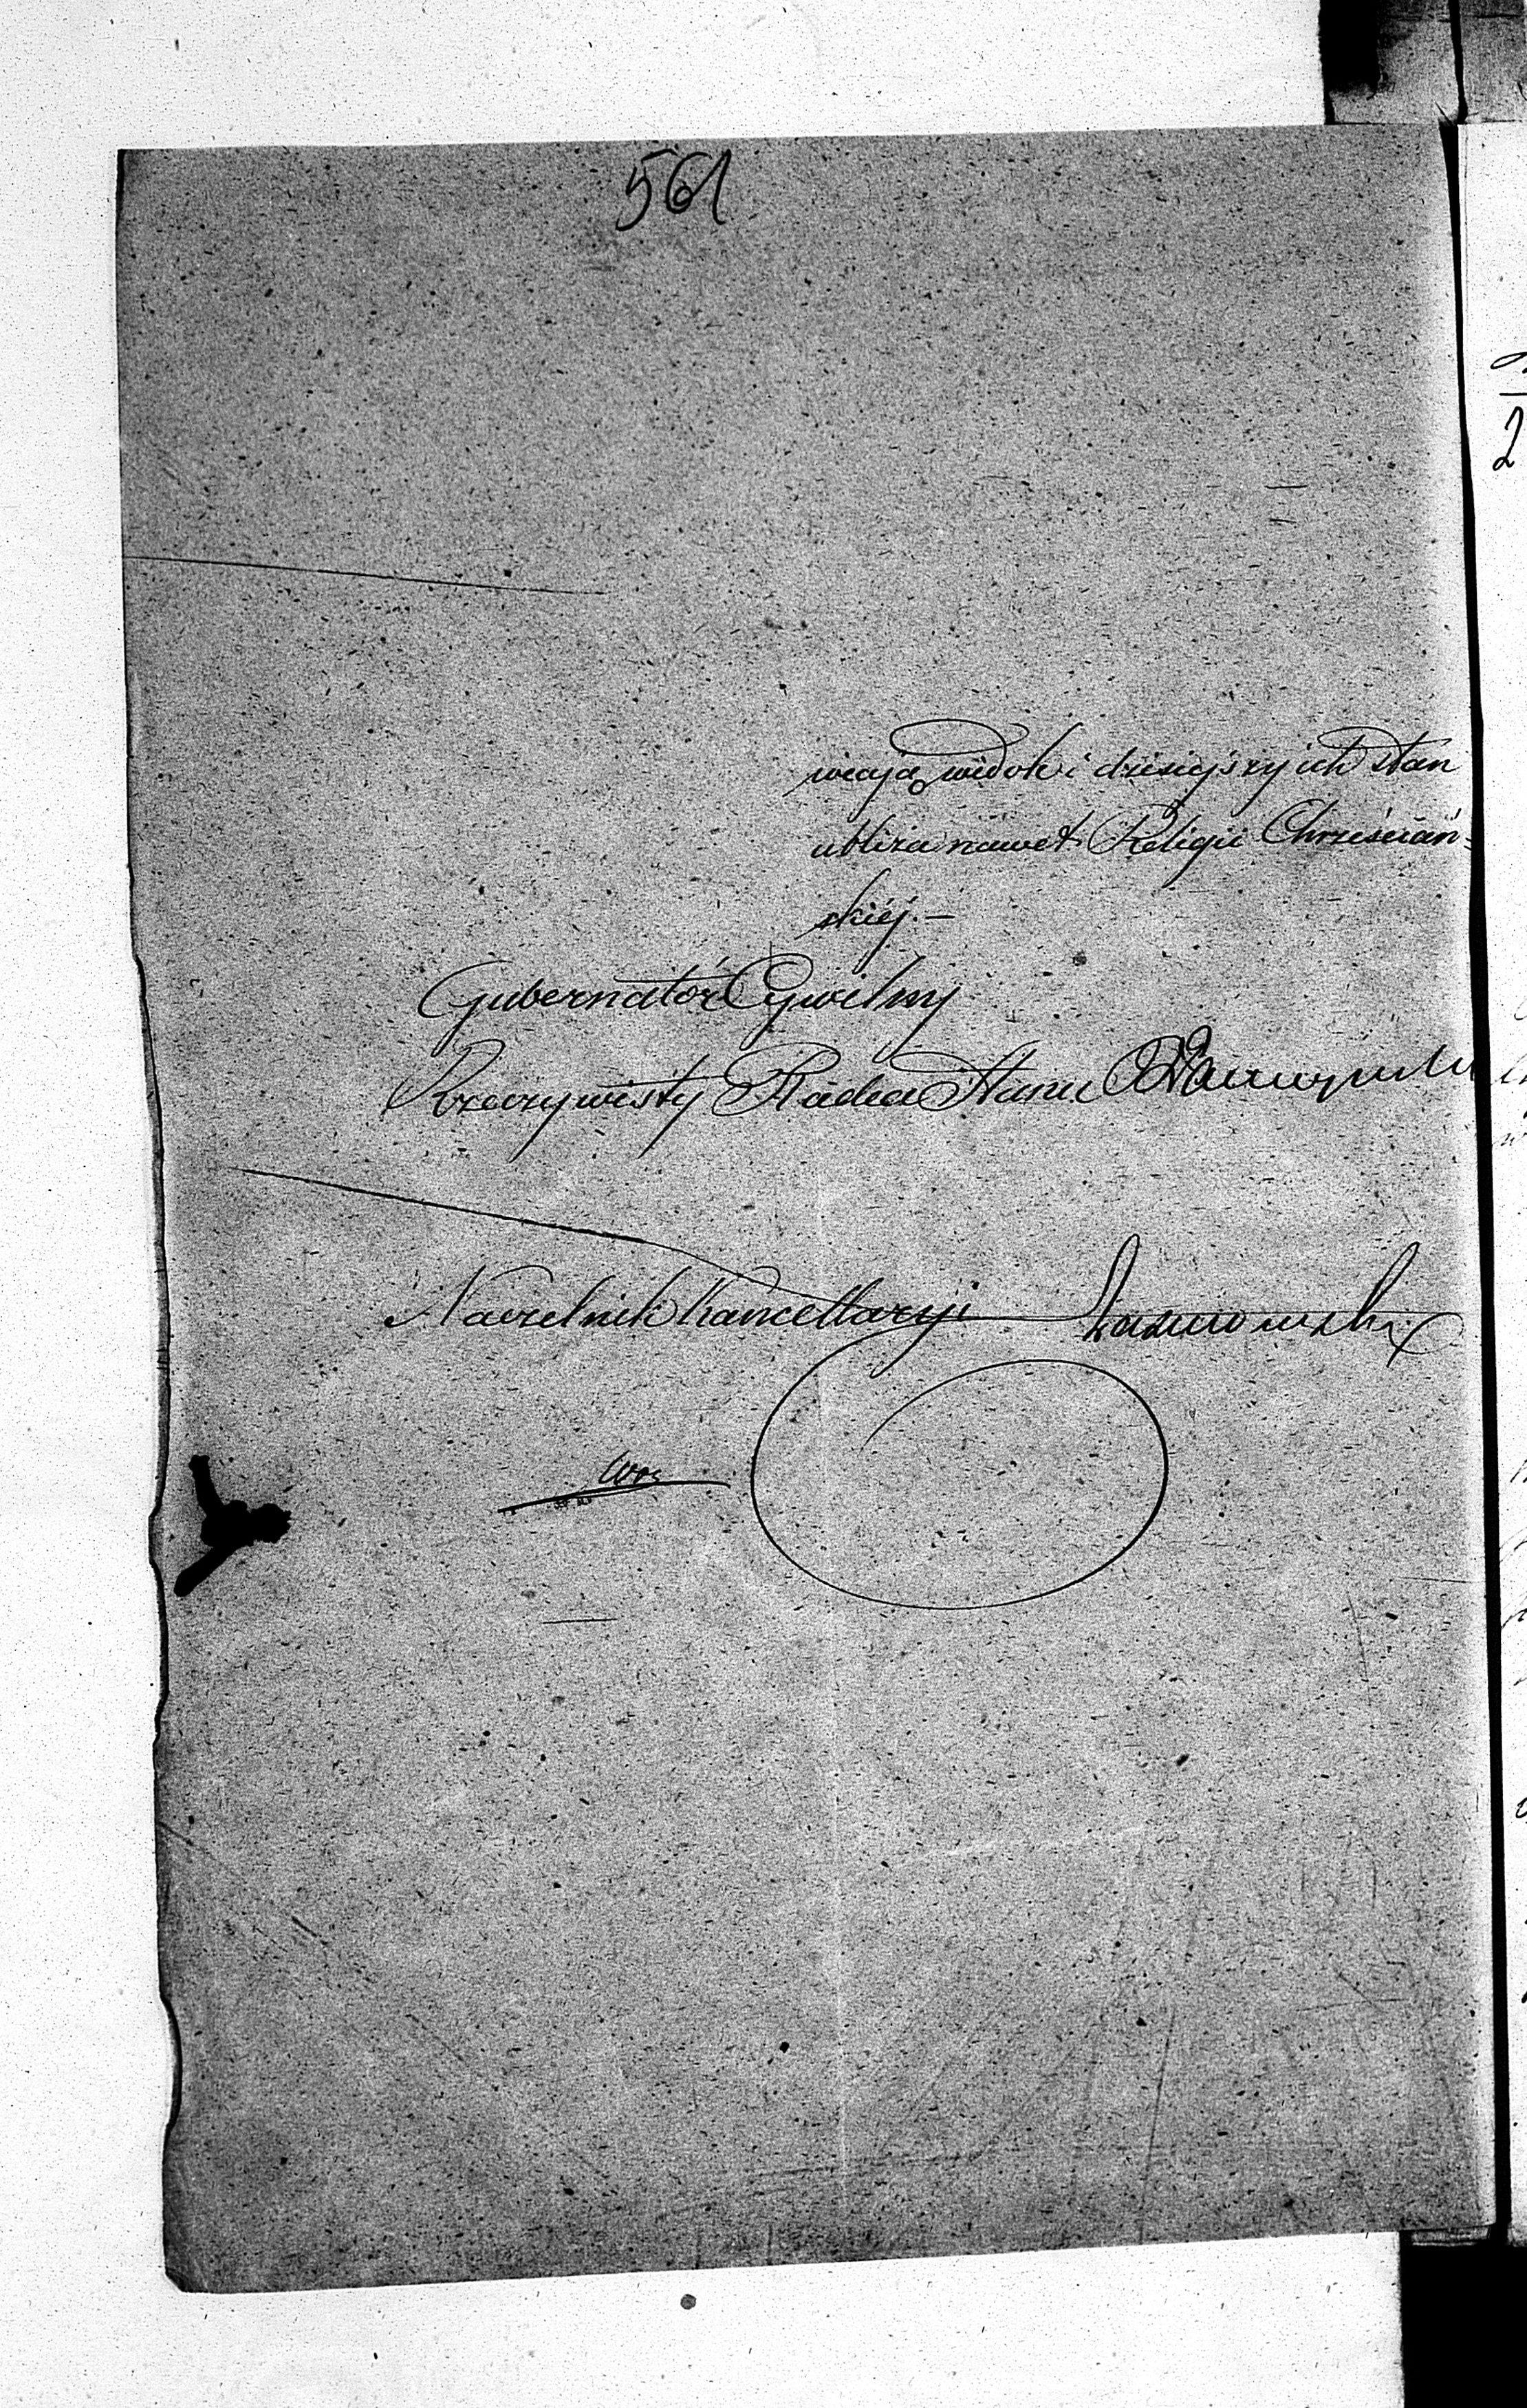 561
wiają widok i dzisiejszy ich stan
ubliża nawet Religii Chrześciań-
skiéj. —
Gubernator Cywilny
Rzeczywisty Radca Stanu
Naczelnik Kancellaryi